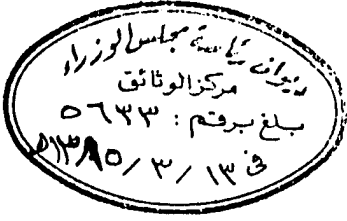 ديوان رئاسة مجلس الوزراء
مركز الوثائق
بلغ برقم : ٥٦٣٣
في ١٣ / ٣ / ١٣٨٥هـ